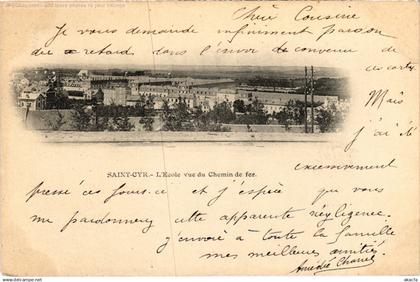 Chère Cousine
Je vous demande infiniment pardon
du retard dans l'envoi de convenu de
ces cartes
Mais
j'ai été
SAINT-CYR.- L'Ecole vue du Chemin de fer.
excessivement
pressé ces jours-ce et j'espère que vous
me pardonnerez cette apparente négligence.
j'envoie à toute la famille
mes meilleures amitiés.
Amédée